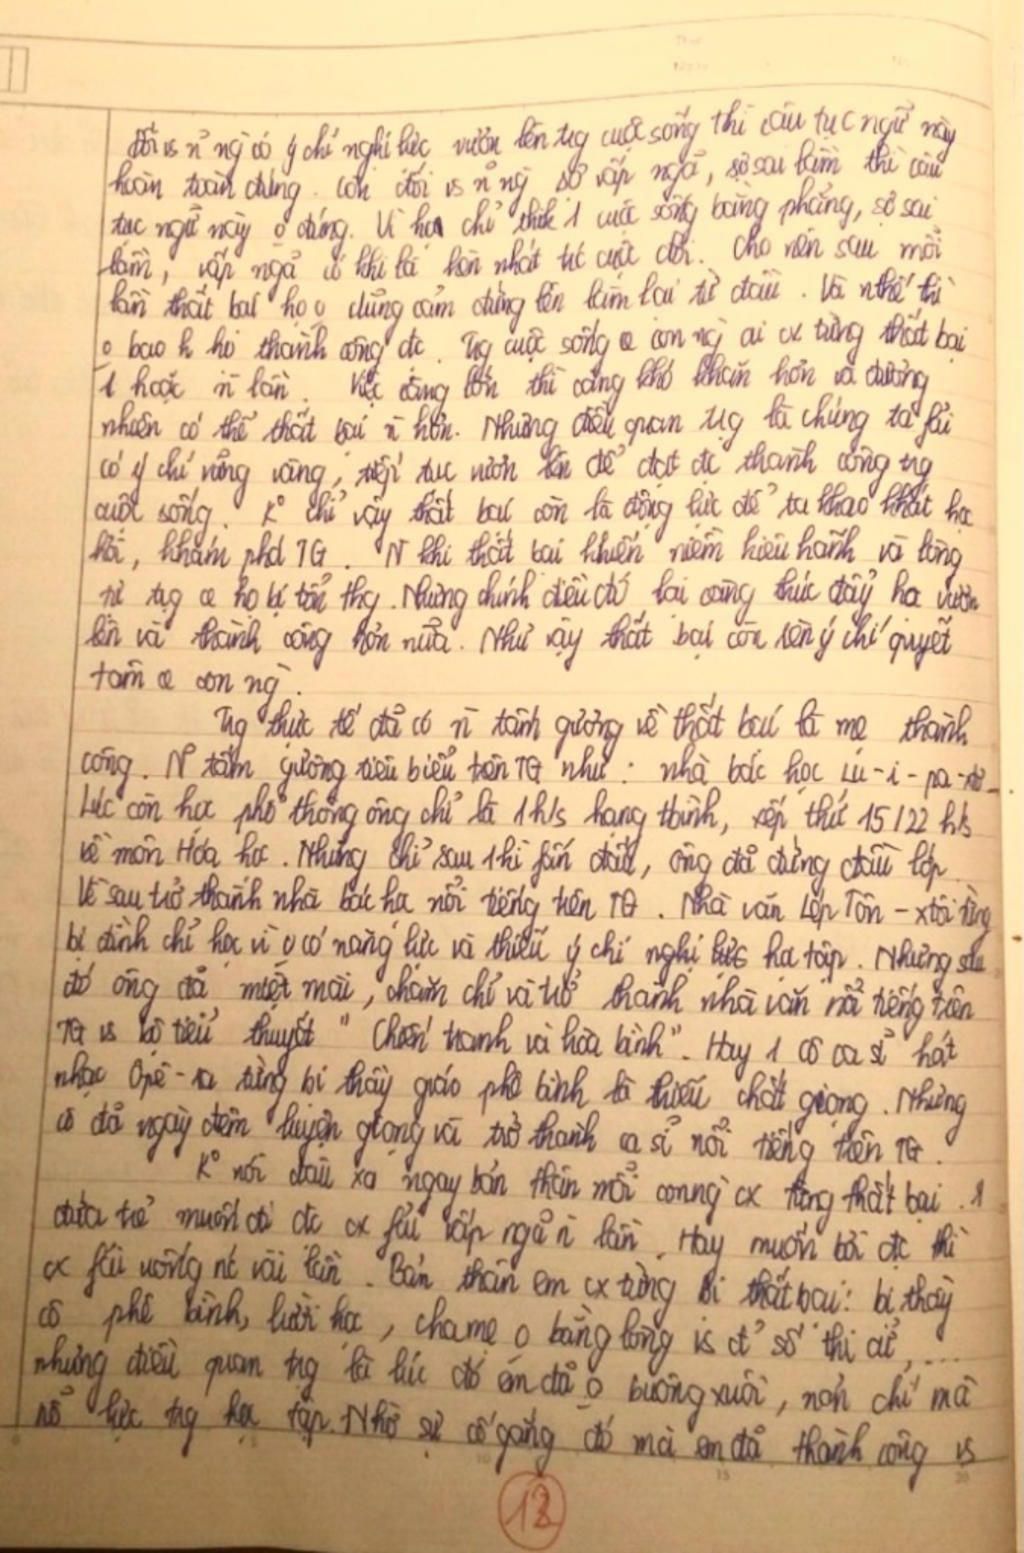 Đối vs n ng có ý chí nghị lực vươn lên tng cuộc sống thì câu tục ngữ này
hoàn toàn đúng. Còn đối vs n ng sợ vấp ngã, sợ sai lầm thì câu
tục ngữ này o đúng. Vì họ chỉ thik 1 cuộc sống bằng phẳng, sợ sai
lầm, vấp ngã có khi là hèn nhát tc cuộc đời. Cho nên sau mỗi
lần thất bại họ o dũng cảm đứng lên làm lại từ đầu. Và nthế thì
o bao h họ thành công đc. Tng cuộc sống @ con ng ai cx từng thất bại
1 hoặc n lần. Việc càng lớn thì càng khó khăn hơn và đương
nhiên có thể thất bại n hơn. Nhưng điều quan tṇg là chúng ta fải
có ý chí vững vàng, tiếp tục vươn lên để đạt đc thành công tng
cuộc sống. K° chỉ vậy thất bại còn là động lực để ta khao khát học
hỏi, khám phá TG. N khi thất bại khiến niềm kiêu hãnh và lòng
tự tṇg @ họ bị tổn thg. Nhưng chính điều đó lại càng thúc đẩy họ vươn
lên và thành công hơn nữa. Như vậy thất bại còn rèn ý chí quyết
tâm @ con ng.
Tng thực tế đã có n tấm gương về thất bại là mẹ thành
công. N tấm gương tiêu biểu trên TG như: nhà bác học Lu-i-pa-xtơ
Lúc còn học phổ thông ông chỉ là 1 h/s hạng tbình, xếp thứ 15/22 h/s
về môn Hóa học. Nhưng chỉ sau 1 hì fấn đấu, ông đã đứng đầu lớp.
Về sau trở thành nhà bác học nổi tiếng trên TG. Nhà văn Lép Tôn-xtôi từng
bị đình chỉ học vì o có năng lực và thiếu ý chí nghị lực học tập. Nhưng sau
đó ông đã miệt mài, chăm chỉ và trở thành nhà văn nổi tiếng trên
TG vs bộ tiểu thuyết "Chiến tranh và hòa bình". Hay 1 cô ca sĩ hát
nhạc Ôpê-ra từng bị thầy giáo phê bình là thiếu chất giọng. Nhưng
cô đã ngày đêm luyện giọng và trở thành ca sĩ nổi tiếng trên TG.
K° nói đâu xa ngay bản thân mỗi con ng cx từng thất bại. 1
đứa trẻ muốn đi đc cx fải vấp ngã n lần. Hay muốn bơi đc thì
cx fải uống nc vài lần. Bản thân em cx từng bị thất bại: bị thầy
cô phê bình, lười học, cha mẹ o bằng lòng vs đ số thi cử,....
nhưng điều quan tṇg là lúc đó em đã o buông xuôi, nản chí mà
nỗ lực tng học tập. Nhờ sự cố gắng đó mà em đã thành công vs
12